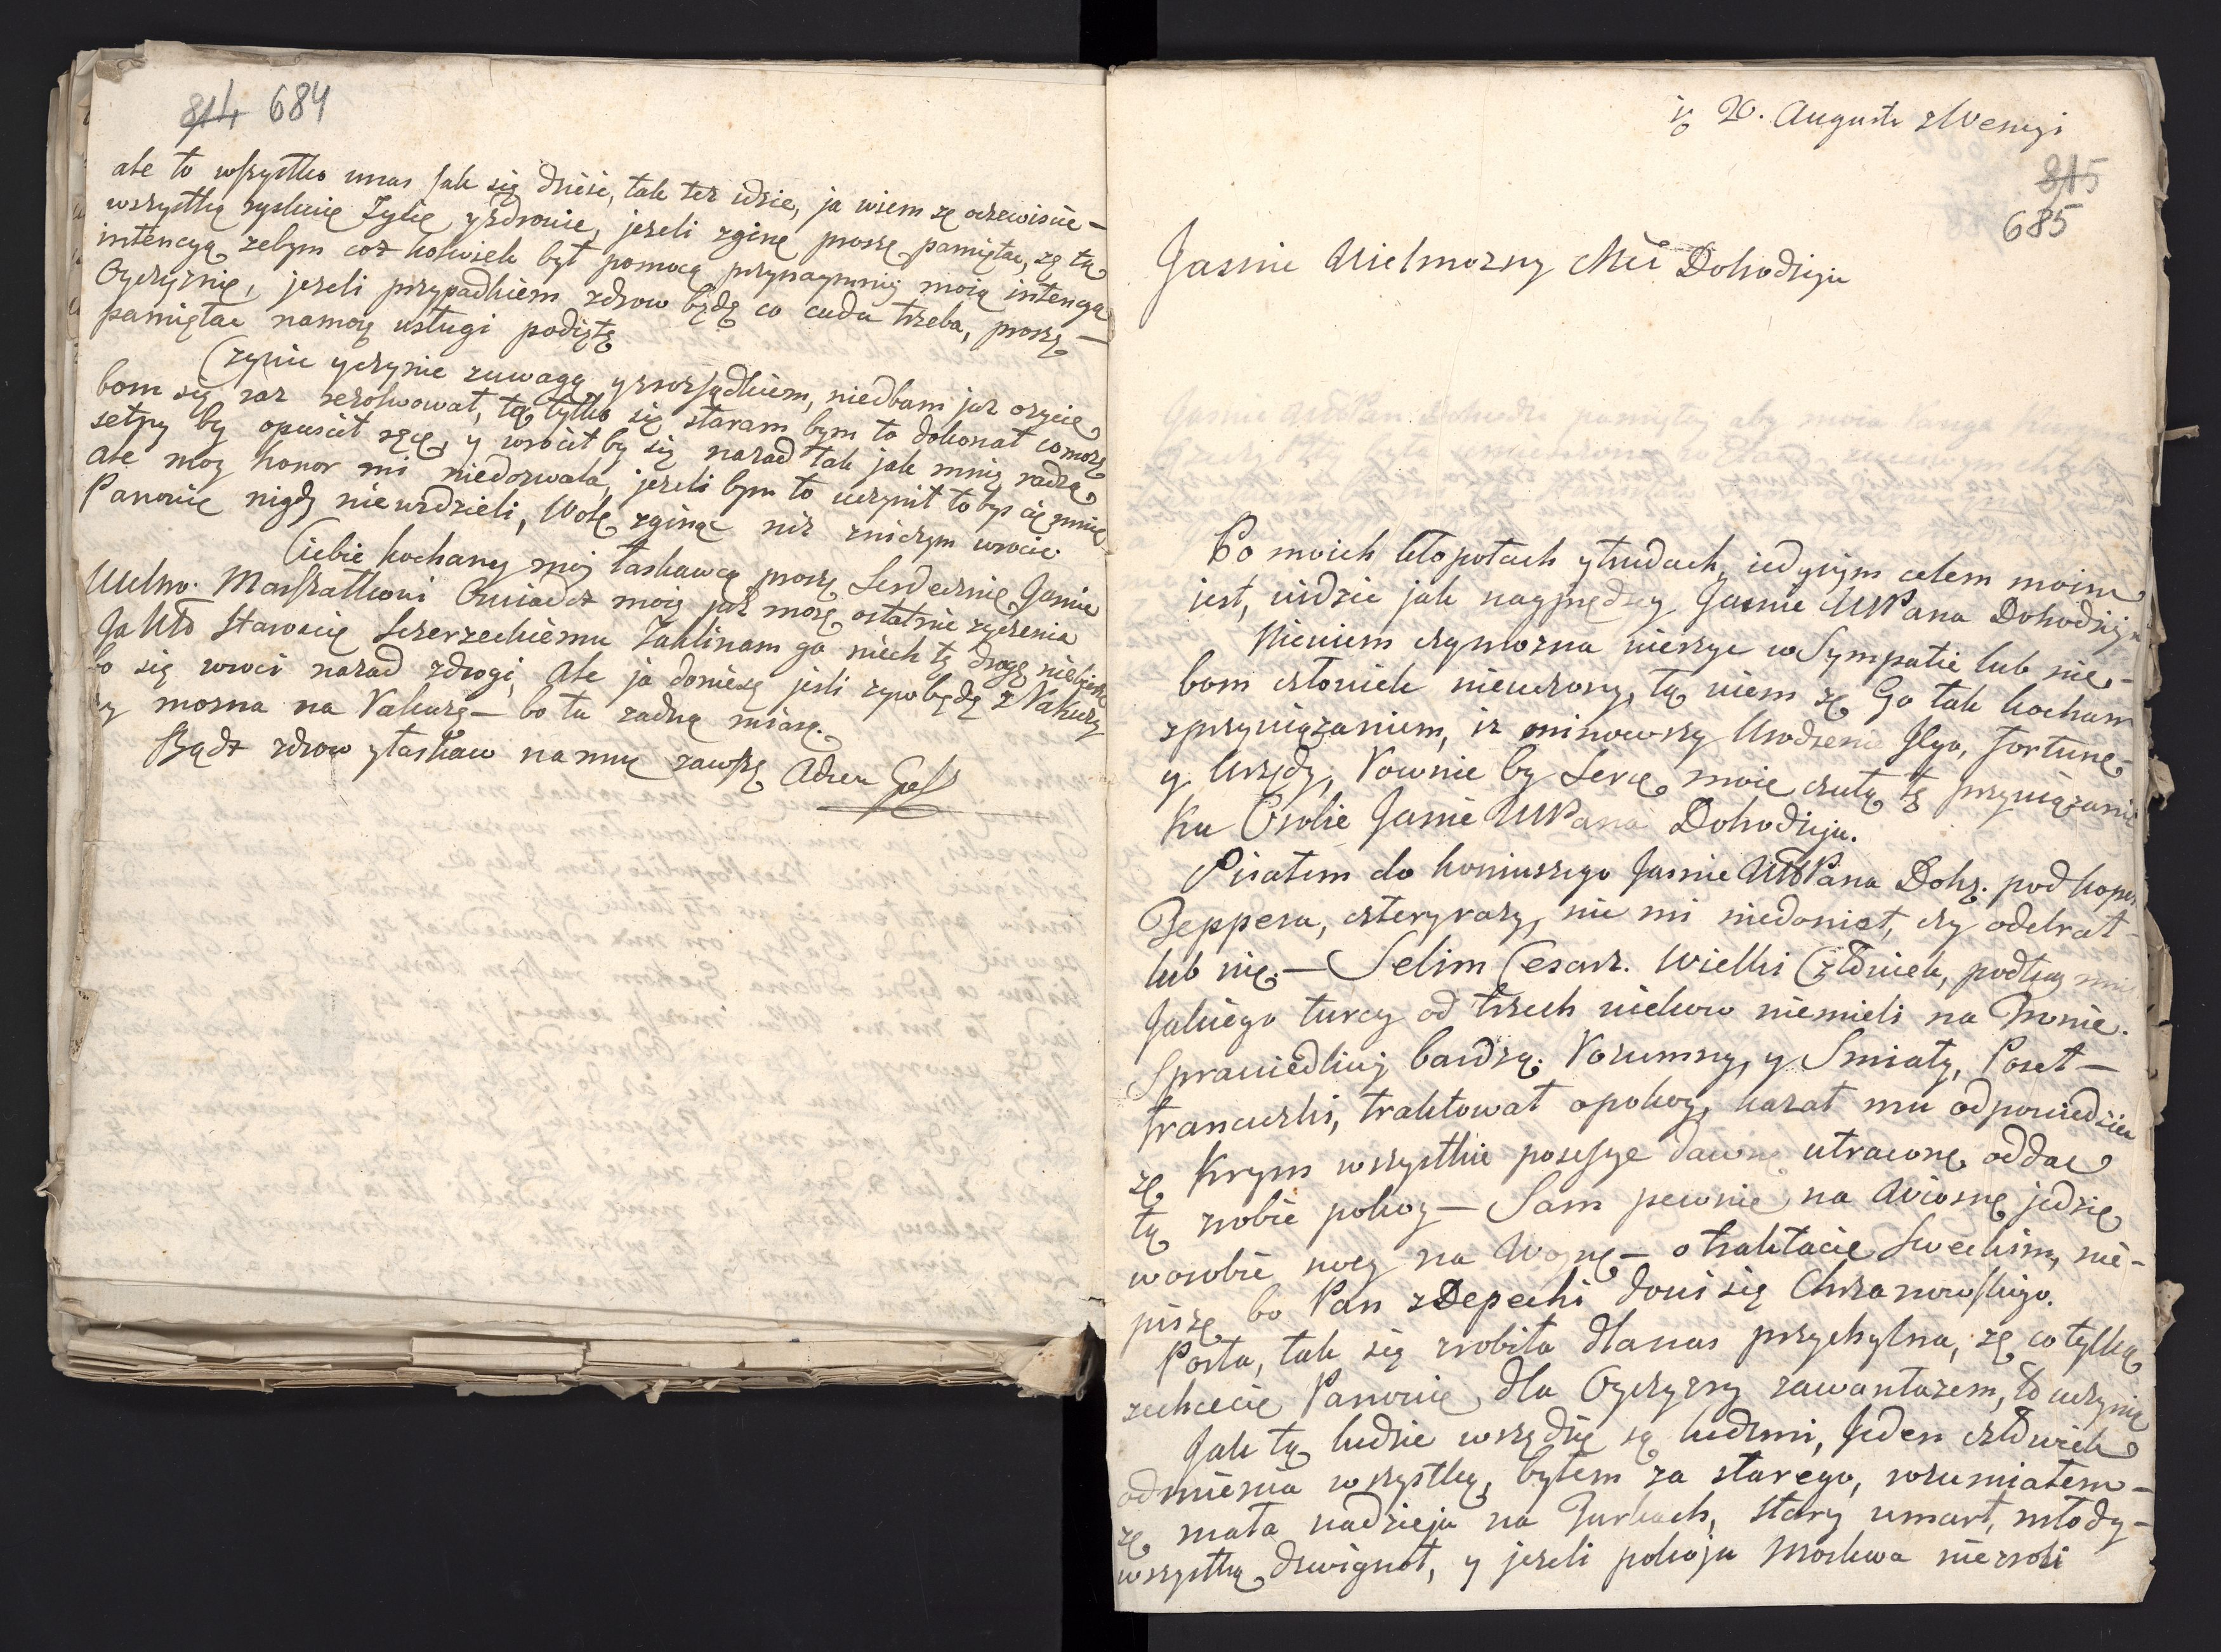 814 684
ale to wszystko unas jak się dzieie, tak też idzie, ja wiem zę oczewiscie –
wszystkię ryskuię Zycię, y zdrowie, jezeli zginę proszę pamiętac, zę tą
intencyą zebym coz kolwiek był pomocą przynaymniy moią intencyą
Oyczyznię, jezeli przypadkiem zdrow będę co cuda trzeba, proszę –
pamiętac namoię usługi podiętę
Czynie yczynie zuwagą y zrozsądkiem, niedbam juz ozycię
bom się raz rezolwował, tę tylko się staram bym to dokonał comoże
setny by opuscił ręcę, y wrocił by się nazad tak jak mnię radzą,
ale moy honor mi niedozwala, jezeli bym to uczynił to bys cię mnię
Panowię nigdy niewidzieli, Wolę zginąc niz zniczym wrocic
Ciebie kochany moy łaskawcę proszę Serdecznię Jasnie
Wielmo. Marszałkowi Oswiadcz moię juz możę ostatnie zyczenia
JaWo Staroscię Sczerzeckiemu Zaklinam go niech tę drogę niebierze
bo się wroci nazad zdrogi, Ale ja doniesę jesli zyw będę z Rakuzy
czy mozna na Rakuzę – bo ta zadną miarę.
Bądz zdrow yłaskaw namnę zawszę Adieu
ię 20. Augusti zWenezyi
815
685
Jasnie Wielmozny Mci Dobodzieju
Po moich kłopotach ytrudach, iedynym celem moim
jest, widzic jak nayprędzey Jasnie WPana Dobodzieju
Niewiem czymozna wierzyc wSympatie lub nie –
bom człowiek nieuczony, tę wiem zę Go tak kocham
zprzywiązaniem, iz minowszy Urodzenie Jego, fortunę –
y Urzędy, Rownie by Serce moie czułę tę przywiązanie
Ku Osobie Jasnie WPana Dobodzieju.
Pisałem do koniuszego Jasnie WPana Dobo. pod koper.
Zeppera, czteryrazy, nic mi niedoniosł, czy odebrał –
lub nię. – Selim Cesarz. Wielki Człowiek, podług mnie
Jakiego turcy od trzech wiekow niemieli na Tronie.
Sprawiedliwy bardzę. Rozumny, y Smiały, Poseł –
francuzki, traktował opokoy, kazał mu odpowiedziec
zę Krym wszystkie posesye dawnę utraconę oddac
tę zrobie pokoy – Sam pewnie na Wiosnę jedzię
wosobie swey na Woynę – otraktacie Sweckim, nie –
piszę bo Pan zDepechi dowi się Chrzanowskiego.
Porta, tak się zrobiła dlanas przychylna, zę cotylkę
zechcecię Panowię, dla Oyczyzny zawantazem, to uczynię
Jak tę ludzie wszędzię są ludzmi, Jeden człowiek
odmienia wszystkę, byłem za starego, rozumiałem –
zę mała nadzieja na Turkach, stary umarł, młody –
wszystkę dzwignoł, y jezeli pokoju Moskwa niezrobi